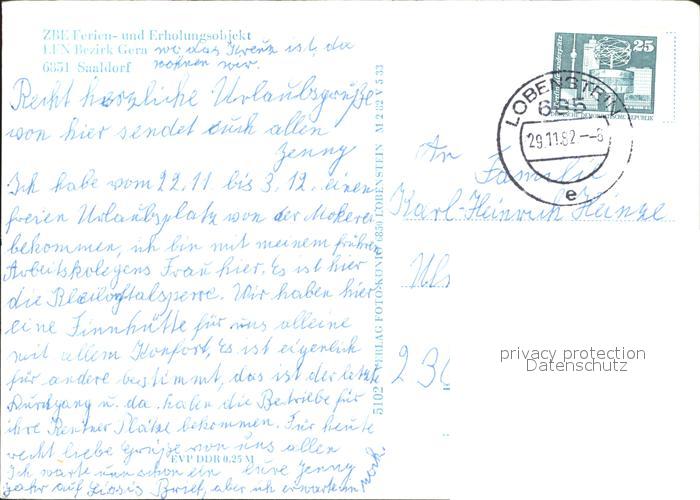 ZBE Ferien- und Erholungsobjekt
LFN Bezirk Gera wo das Kreuz ist, da
6851 Saaldorf wohnen wir.
Recht herzliche Urlaubsgrüße
von hier sendet euch allen
Jenny
Ich habe vom 22.11 bis 3.12. einen
freien Urlaubsplatz von der Mokerei
bekommen, ich bin mit meinem früher
Arbeitskolegens Frau hier. Es ist hier
die Bleilochtalsperre. Wir haben hier
eine Finnhütte für uns alleine
mit allem Konfort, Es ist eigenlich
für andere bestimmt, das ist der letzte
Durchgang u. da haben die Betriebe für
ihre Rentner Plätze bekommen. Für heute
recht liebe Grüße von uns allen
EVP DDR 0,25 M
Ich warte nun schon ein eure Jenny
Jahr auf Brief, aber ich erwarte ihn noch
5102 VERLAG FOTO-KÖNIG 6850 LOBENSTEIN M 2 82 V 5 33
25
DEUTSCHE DEMOKRATISCHE REPUBLIK
LOBENSTEIN
685
29.11.82
e
An
Familie
Karl-Heinrich Heinze
privacy protection
Datenschutz